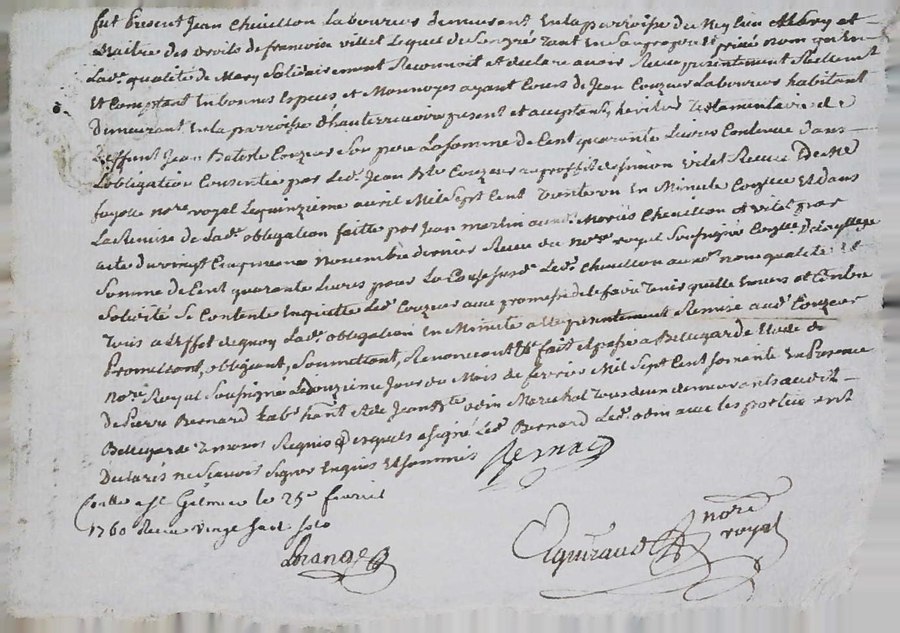 fut present Jean Chevillon Laboureur demeurant en la parroisse de Meylieu et
des droits de francoise villet Lequel de son gré tant en son propre et privé nom qu'en
Lad. qualité de Mary Solidairement Reconnoit et declare avoir Receu presentement Reellement
Et Comptant En bonnes Especes et Monnoyes ayant Cours de Jean Couzeur Laboureur habitant
demeurant En la parroisse d'hauterivoire present et acceptant, heritier Testamentaire de
deffunt Jean Couzeur Son pere La Somme de Cent quarante Livres Contenue dans
L'obligation Consentie par Led. Jean Couzeur au proffit de Simon vilet Receue
fayolle nore. royal Le quinzieme avril Mil Sept Cent trente un En Minute et dans
La Remise de Lad. obligation faitte par Jean martin aud. Chevillon et vilet par
acte du vingt Cinquieme Novembre dernier Receu du nore. royal Soussigné
Somme de Cent quarante Livres pour La Cause susd. Led. Chevillon aud. nom qualité et
Solidité Se Contente En quitte Led. Couzeur avec promesse de Le faire tenir quitte Envers et Contre
Tous a L'effet de quoy Lad. obligation En Minute a été presentement Remise aud. Couzeur
Promettant, obligeant, Soumettant, Renoncant &c fait et passé a Bellegarde Etude du
nore. Royal Soussigné Le douzieme Jour du Mois de fevrier Mil Sept Cent soixante En Presence
de Pierre Bernard habitant et de Jean odin Marechal Tous deux demeurants audit
Bellegarde Temoins Requis desquels a signé Led. Bernard Led. odin avec les parties ont
Declarés ne Scavoir Signer Enquis Et Sommés Bernard
Conllé a St Gelmier le 25e fevrier
1760 Receu vingt sept sols
nore. royal